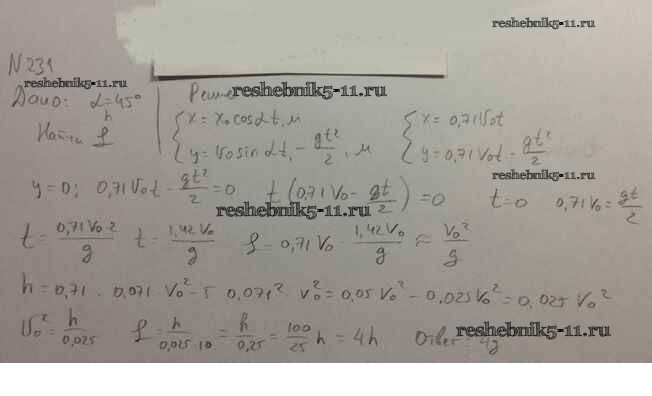 reshebnik5-11.ru
N 231
reshebnik5-11.ru
Дано: α=45°
h
Найти ℓ
Реше
reshebnik5-11.ru
x = x₀cosαt, м
y = v₀sinαt, - gt²/2, м
x = 0,71v₀t
y = 0,71v₀t - gt²/2
reshebnik5-11.ru
y = 0; 0,71v₀t - gt²/2 = 0 t (0,71v₀ - gt/2) = 0 t = 0 0,71v₀ = gt/2
reshebnik5-11.ru
t = 0,71v₀·2/g t = 1,42v₀/g ℓ = 0,71v₀ · 1,42v₀/g ≈ v₀²/g
h = 0,71 · 0,071 v₀² - 5 0,071² v₀² = 0,05v₀² - 0,025v₀² = 0,025v₀²
v₀² = h/0,025 ℓ = h/0,025·10 = h/0,25 = 100/25 h = 4h Ответ:
reshebnik5-11.ru